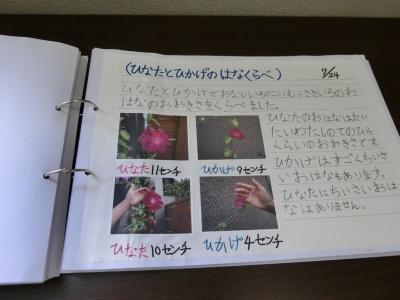 (ひなたとひかげのはなくらべ)
7/24
ひなたとひかげでおなじいろのこいむらさきいろのお
はなのおおきさをくらべました。
ひなたのおはなはだい
たいわたしのてのひら
くらいのおおきさです
ひかげはすごくちいさ
いおはなもあります。
ひなたにちいさいおは
なはありません。
ひなた11センチ
ひかげ9センチ
ひなた10センチ
ひかげ4センチ